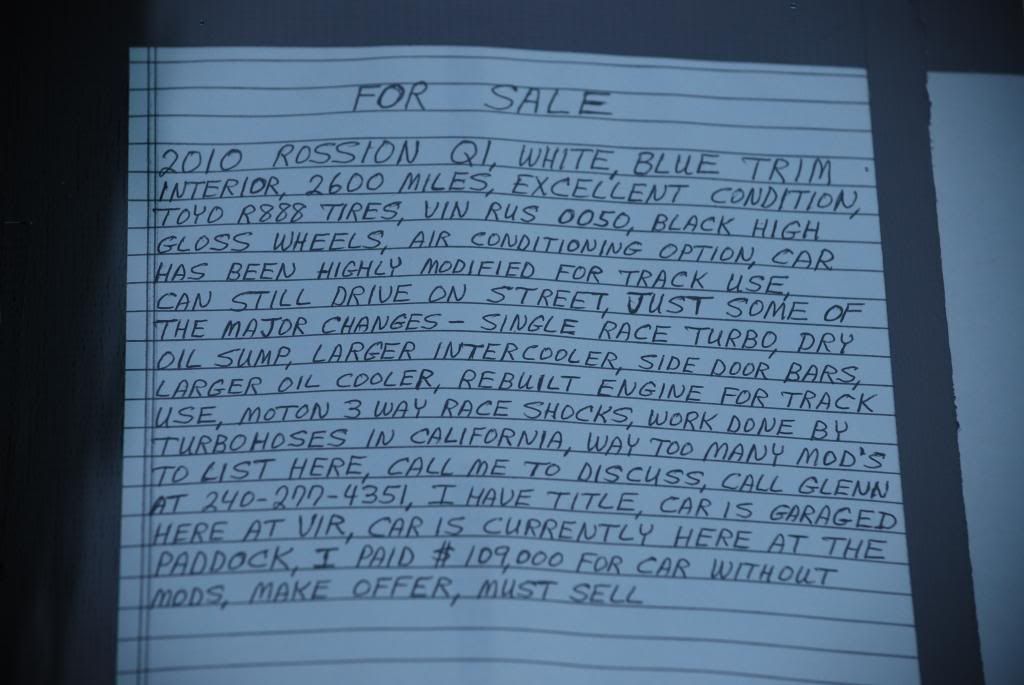 FOR SALE
2010 ROSSION Q1, WHITE, BLUE TRIM
INTERIOR, 2600 MILES, EXCELLENT CONDITION,
TOYO R888 TIRES, VIN RUS 0050, BLACK HIGH
GLOSS WHEELS, AIR CONDITIONING OPTION, CAR
HAS BEEN HIGHLY MODIFIED FOR TRACK USE,
CAN STILL DRIVE ON STREET, JUST SOME OF
THE MAJOR CHANGES - SINGLE RACE TURBO, DRY
OIL SUMP, LARGER INTERCOOLER, SIDE DOOR BARS,
LARGER OIL COOLER, REBUILT ENGINE FOR TRACK
USE, MOTON 3 WAY RACE SHOCKS, WORK DONE BY
TURBOHOSES IN CALIFORNIA, WAY TOO MANY MOD'S
TO LIST HERE, CALL ME TO DISCUSS, CALL GLENN
AT 240-277-4351, I HAVE TITLE, CAR IS GARAGED
HERE AT VIR, CAR IS CURRENTLY HERE AT THE
PADDOCK, I PAID $109,000 FOR CAR WITHOUT
MODS, MAKE OFFER, MUST SELL